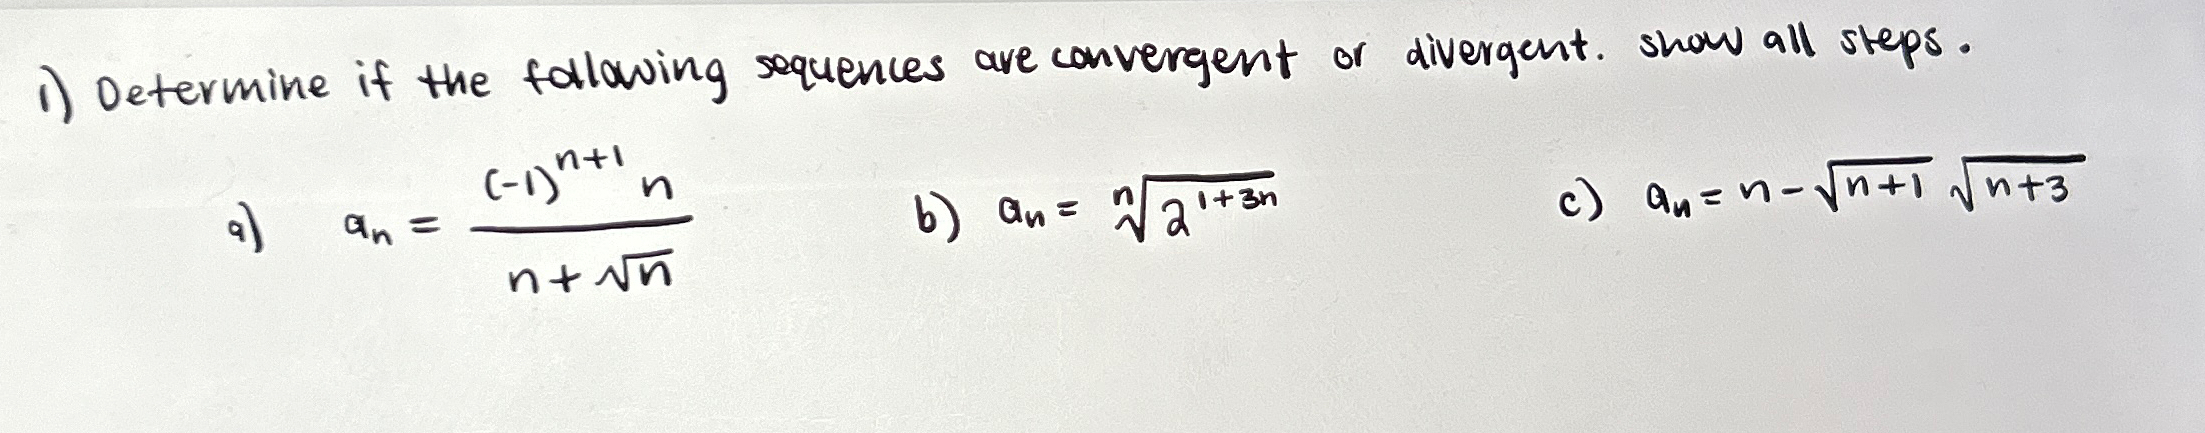 1) Determine if the following sequences are convergent or divergent. show all steps.
a) aₙ = ((-1)^(n+1) n)/(n + √n) b) aₙ = ⁿ√(2^(1+3n)) c) aₙ = n - √(n+1) √(n+3)